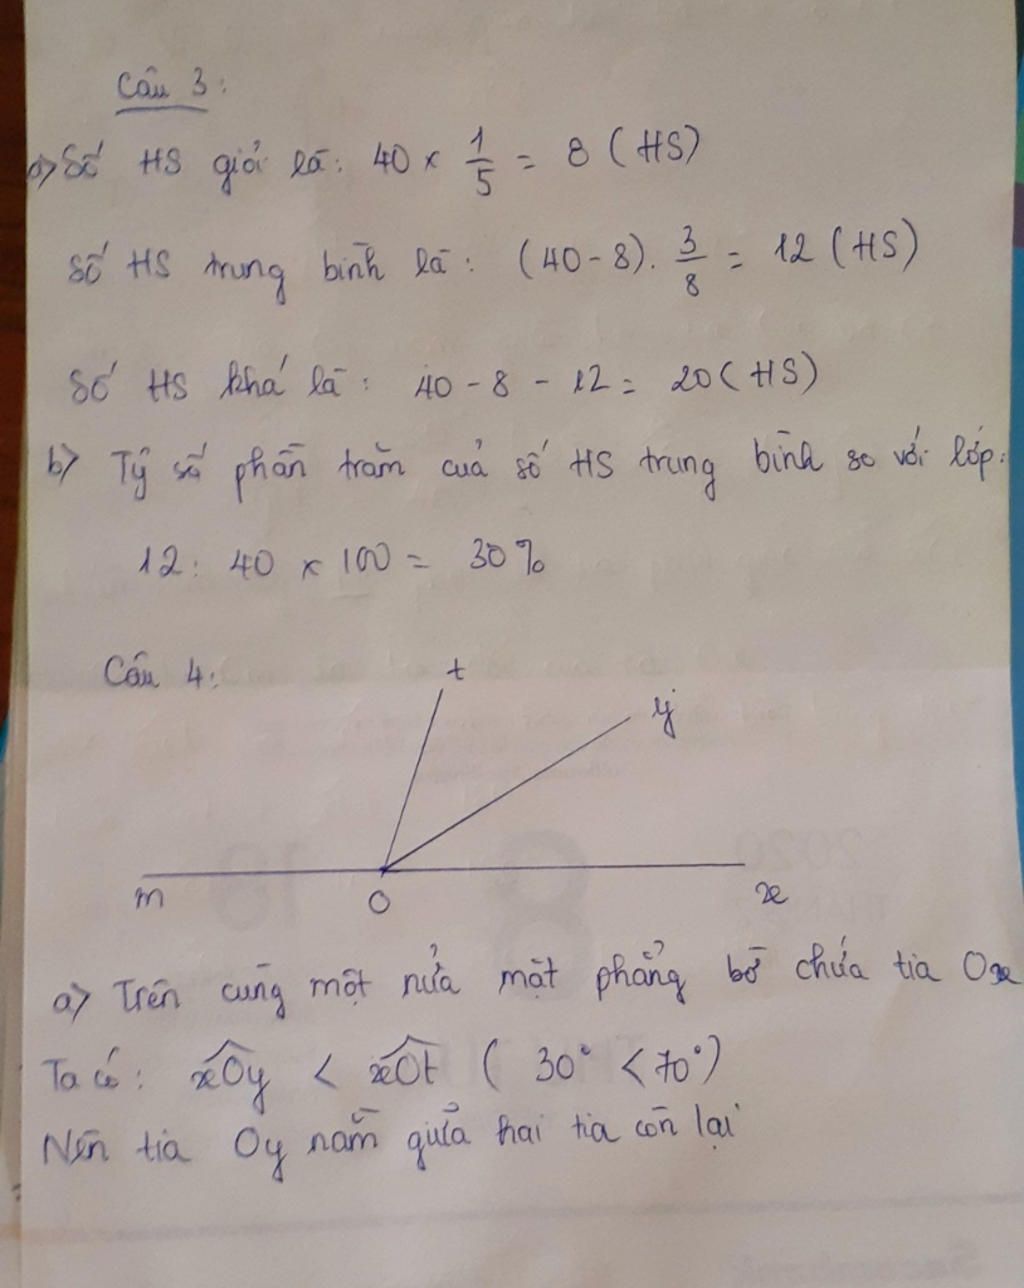 Câu 3:
a) Số HS giỏi là: 40 x 1/5 = 8 (HS)
Số HS trung bình là: (40 - 8). 3/8 = 12 (HS)
Số HS khá là: 40 - 8 - 12 = 20 (HS)
b) Tỷ số phần trăm của số HS trung bình so với lớp:
12: 40 x 100 = 30%
Câu 4:
t
y
m
O
x
a) Trên cùng một nửa mặt phẳng bờ chứa tia Ox
Ta có: xOy < xOt (30° < 70°)
Nên tia Oy nằm giữa hai tia còn lại